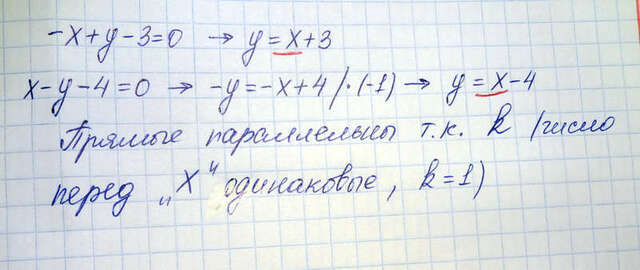 -x+y-3=0 → y=x+3
x-y-4=0 → -y=-x+4 /·(-1) → y=x-4
Прямые параллельны т.к. k (число
перед „x“ одинаковые, k=1)